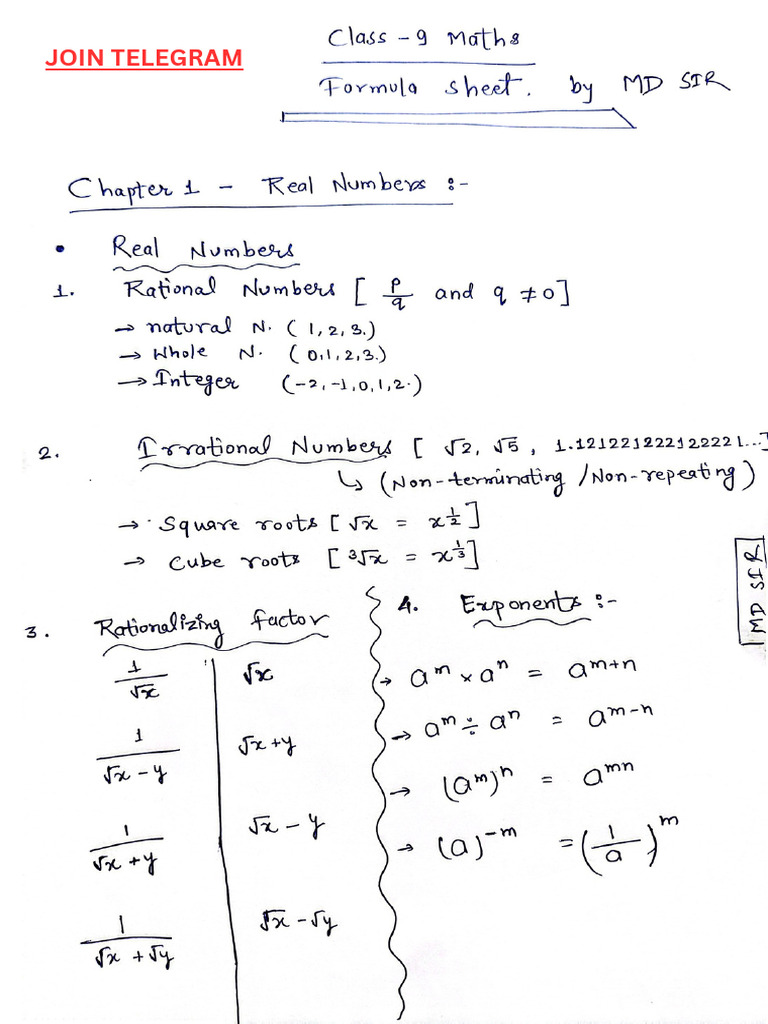 JOIN TELEGRAM
Class - 9 Maths
Formula sheet. by MD SIR
Chapter 1 - Real Numbers :-
• Real Numbers
1. Rational Numbers [ p/q and q ≠ 0 ]
→ natural N. ( 1, 2, 3.)
→ Whole N. ( 0,1,2,3.)
→ Integer (-2,-1,0,1,2.)
2. Irrational Numbers [ √2, √5 , 1.121221222122221...]
↳ (Non-terminating / Non-repeating)
→ Square roots [ √x = x^1/2 ]
→ Cube roots [ ³√x = x^1/3 ]
MD SIR
3. Rationalizing factor
1/√x | √x
1/(√x - y) | √x + y
1/(√x + y) | √x - y
1/(√x + √y) | √x - √y
4. Exponents :-
→ a^m × a^n = a^m+n
→ a^m ÷ a^n = a^m-n
→ (a^m)^n = a^mn
→ (a)^-m = (1/a)^m